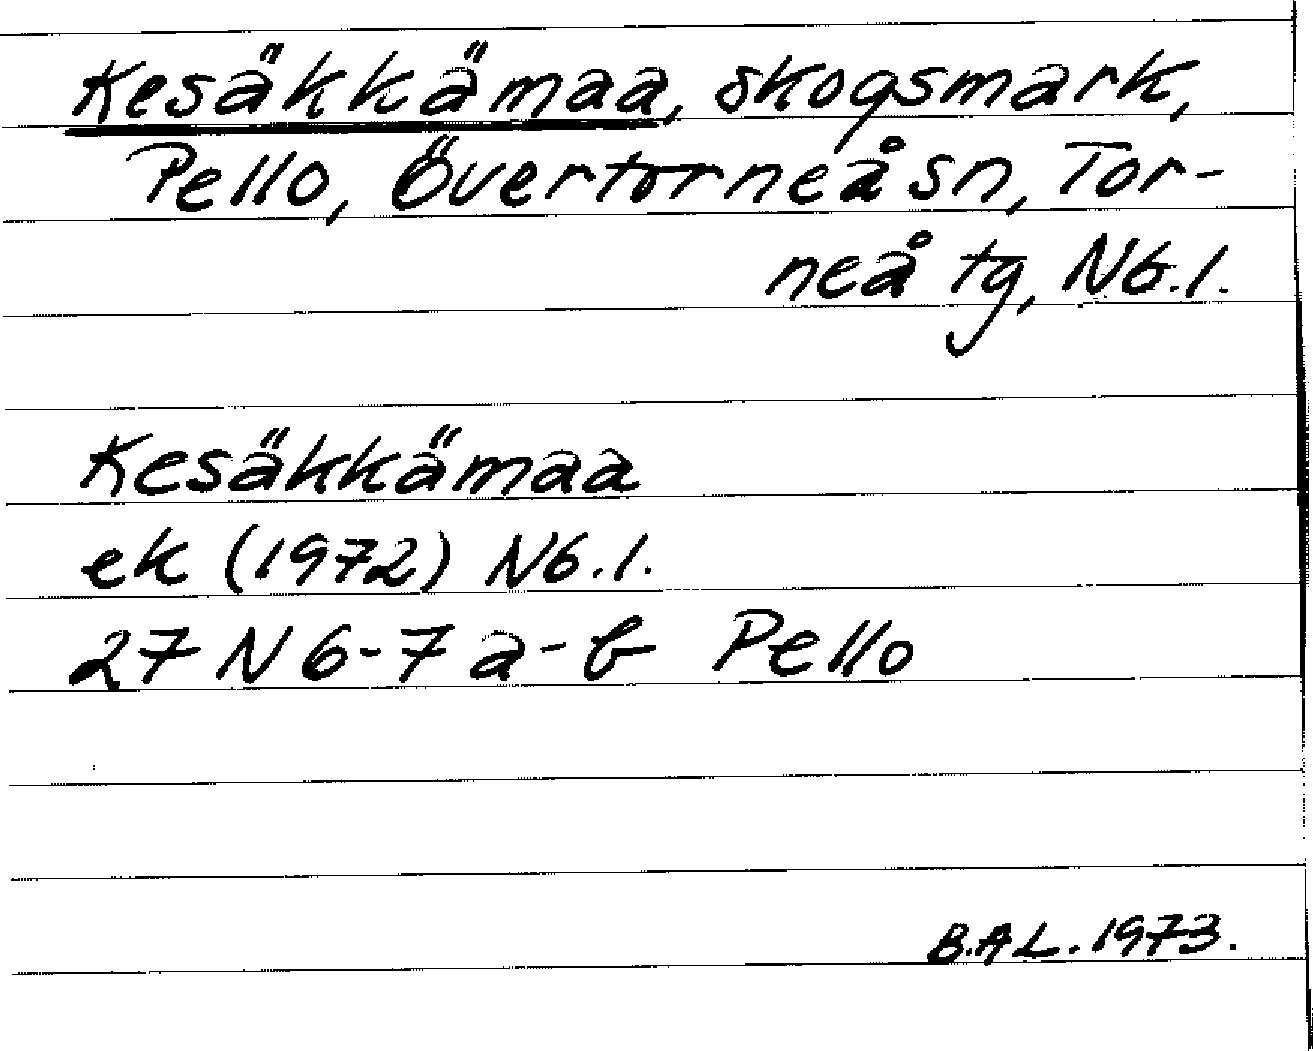 Kesäkkämaa, skogsmark,
Pello, Övertorneå sn, Tor-
neå tg, Nb.l.
Kesäkkämaa
ek (1972) Nb.l.
27 N 6-7 a-b Pello
B.A L. 1973.